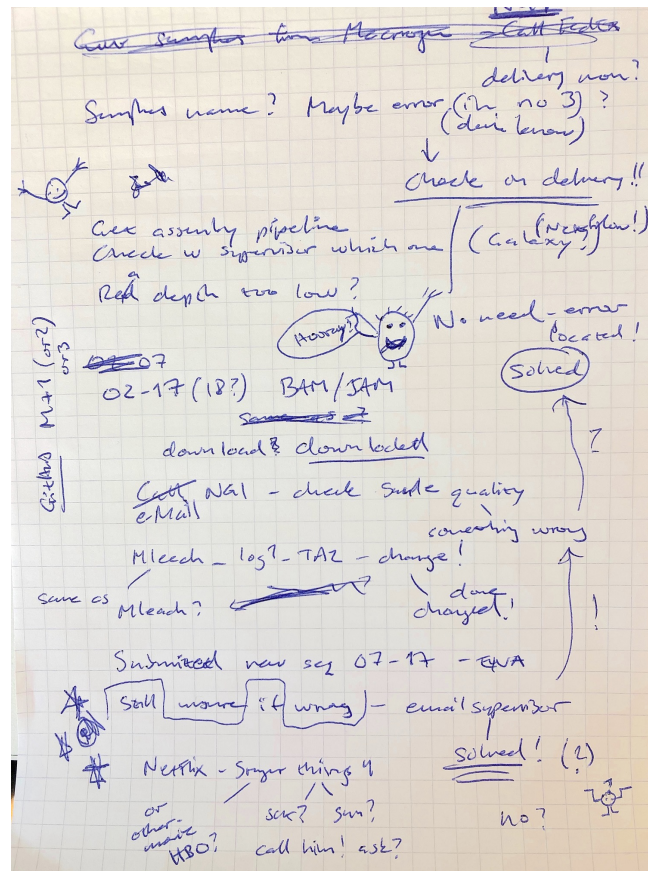 samples from Macrogen - Call FedEx
delivery now?
Samples name? Maybe error (in no 3)?
(dont know)
Check on delivery!!
assembly pipeline
Check w supervisor which one (Galaxy?) (Nextflow!)
Read depth too low?
Hooray!
No need - error
located!
Solved
GitHub M+1 (or 2)
or 3
07
02-17 (18?) BAM/
Same as 7
download? downloaded
?
Call NGI - check quality
eMail
something wrong
Mleech - log? - TA2 - change!
same as Mleach?
done
changed!
!
Submitted new seq 07-17 - ENA
Still unsure if wrong - email supervisor
solved! (?)
Netflix - things 4
or
other
movie
HBO?
call him! ask?
no?